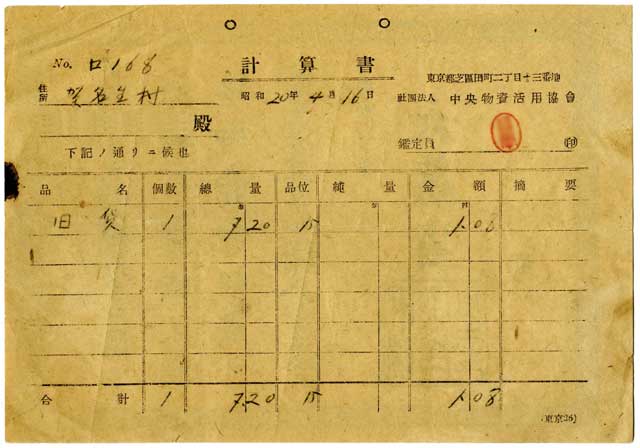 No. ロ168
計算書
東京都芝區田町二丁目十三番地
住所 賀名生村
昭和20年4月16日
社團法人 中央物資活用協會
殿
鑑定員 印
下記ノ通リニ候也
品名 個數 總量 品位 純量 金額 摘要
旧貨 1 7.20 15 1.08
合計 1 7.20 15 1.08
(東京26)